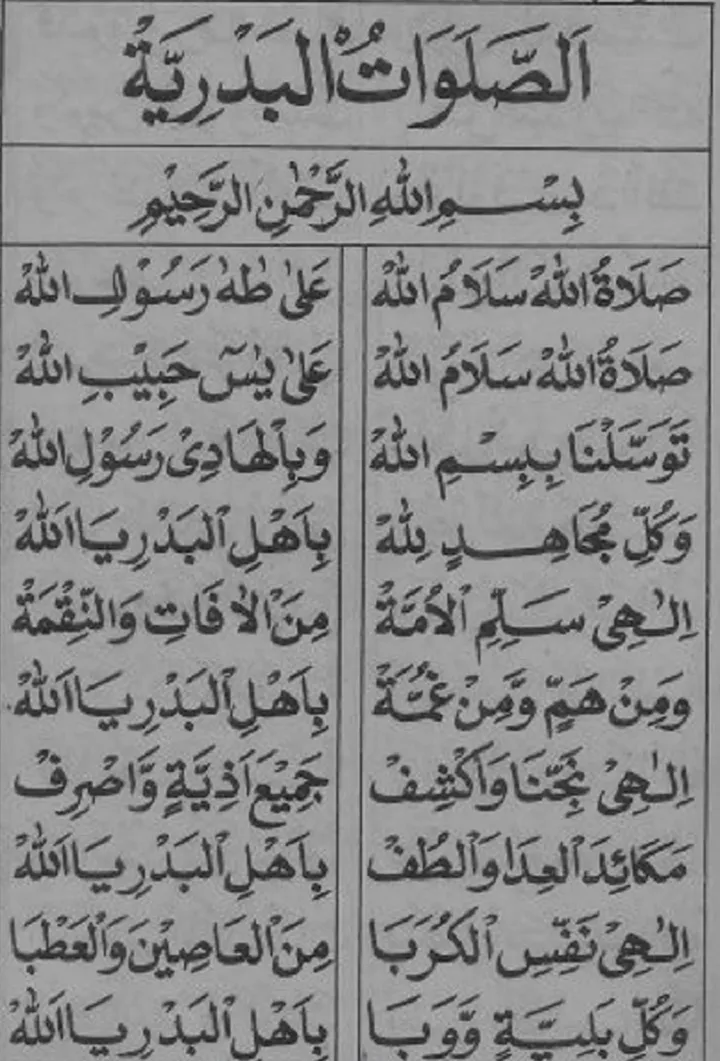 اَلصَّلَوَاتُ الْبَدْرِيَّةُ
بِسْمِ اللهِ الرَّحْمٰنِ الرَّحِيْمِ
صَلَاةُ اللهْ سَلَامُ اللهْ عَلىٰ طٰهٰ رَسُوْلِ اللهْ
صَلَاةُ اللهْ سَلَامُ اللهْ عَلىٰ يٰسٓ حَبِيْبِ اللهْ
تَوَسَّلْنَا بِبِسْمِ اللهْ وَبِالْهَادِىْ رَسُوْلِ اللهْ
وَكُلِّ مُجَاهِدٍ لِلهْ بِاَهْلِ الْبَدْرِ يَا اَللهْ
اِلٰهِىْ سَلِّمِ الْاُمَّةْ مِنَ الْاٰفَاتِ وَالنِّقْمَةْ
وَمِنْ هَمٍّ وَّمِنْ غُمَّةْ بِاَهْلِ الْبَدْرِ يَا اَللهْ
اِلٰهِىْ نَجِّنَا وَاكْشِفْ جَمِيْعَ اَذِيَّةٍ وَّاصْرِفْ
مَكَائِدَ الْعِدَا وَالْطُفْ بِاَهْلِ الْبَدْرِ يَا اَللهْ
اِلٰهِىْ نَفِّسِ الْكُرَبَا مِنَ الْعَاصِيْنَ وَالْعَطْبَا
وَكُلِّ بَلِيَّةٍ وَّوَبَا بِاَهْلِ الْبَدْرِ يَا اَللهْ